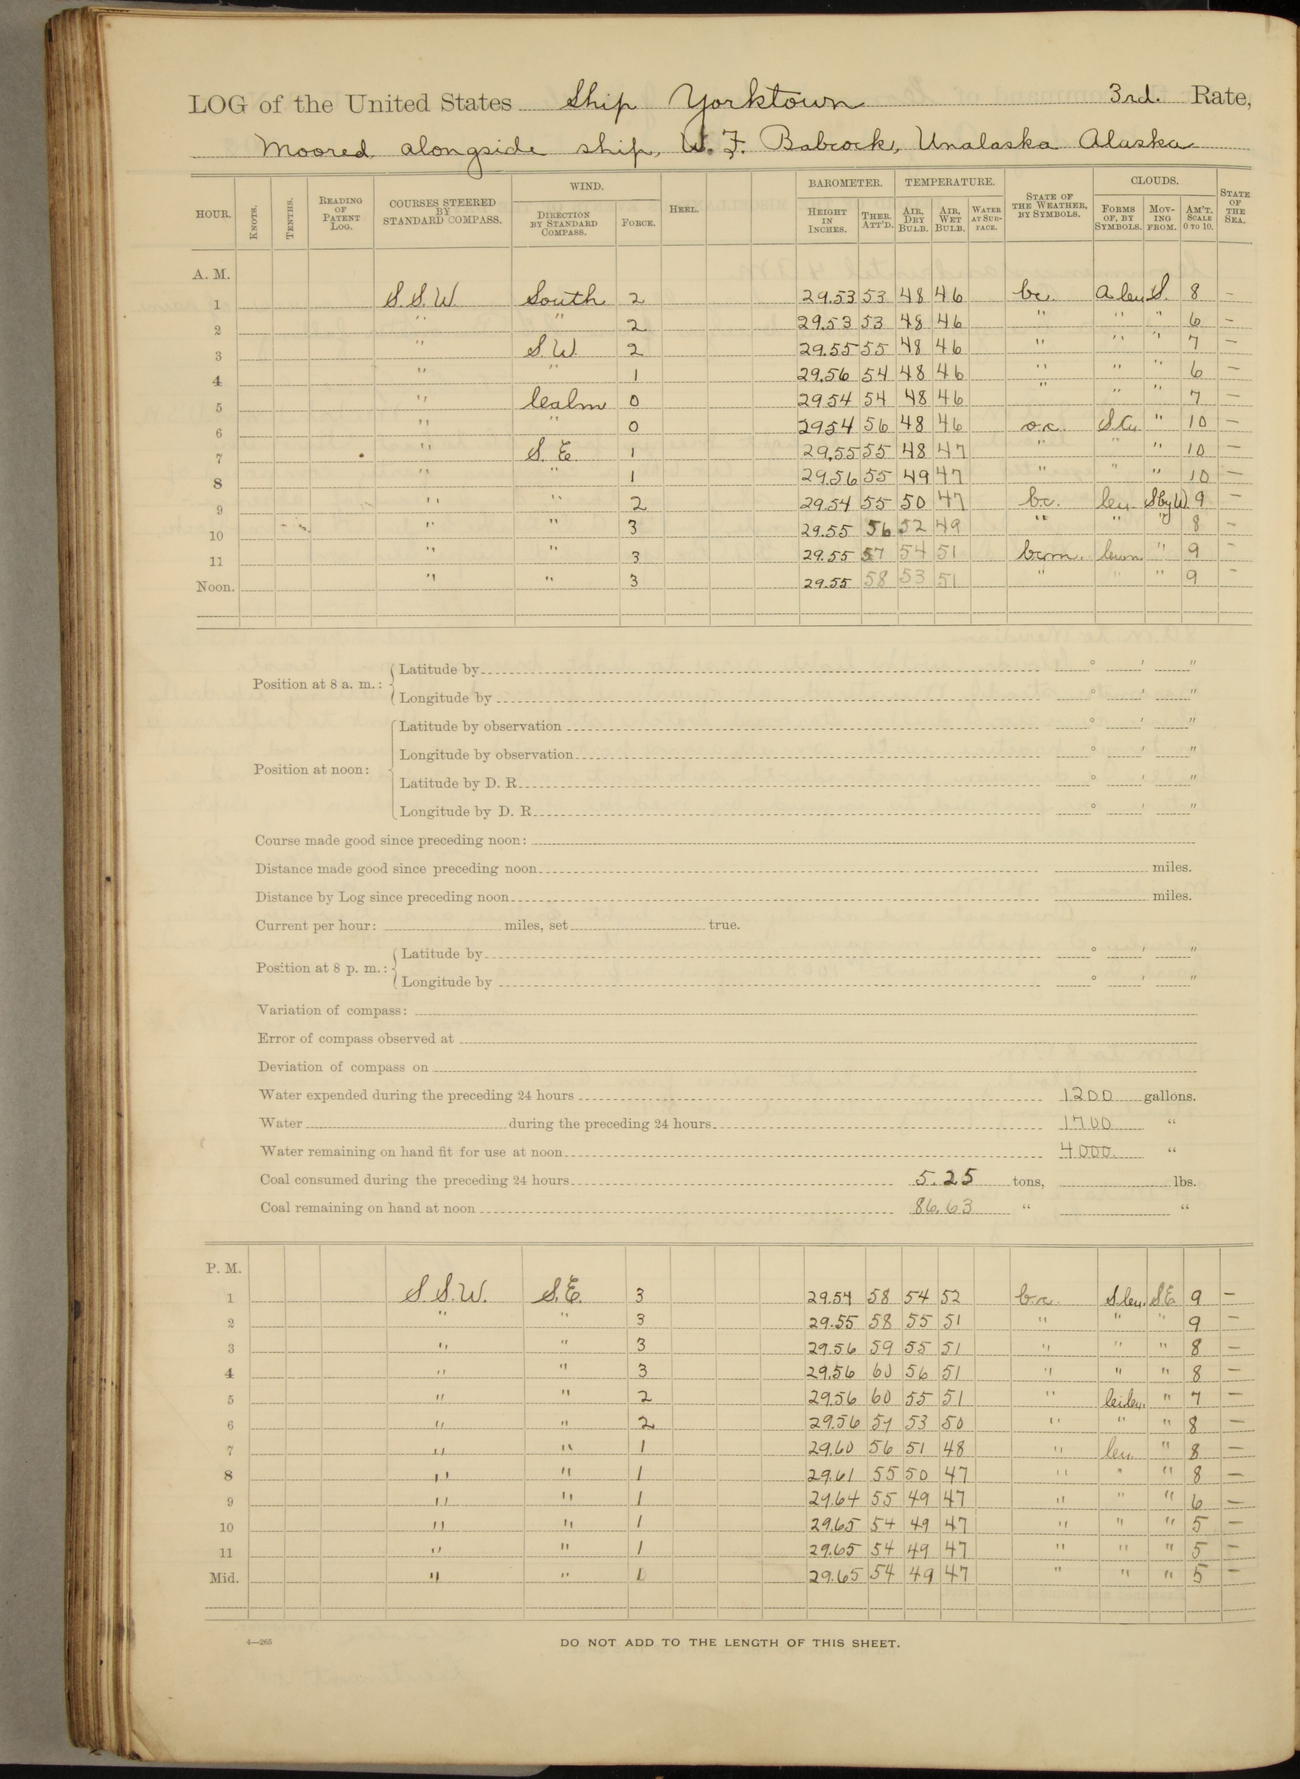 LOG of the United States Ship Yorktown 3rd. Rate,
Moored alongside ship, W. F. Babcock, Unalaska Alaska
HOUR. KNOTS. TENTHS. READING OF PATENT LOG. COURSES STEERED BY STANDARD COMPASS. WIND. DIRECTION BY STANDARD COMPASS. FORCE. HEEL. BAROMETER. HEIGHT IN INCHES. THER. ATT'D. TEMPERATURE. AIR, DRY BULB. AIR, WET BULB. WATER AT SUR-FACE. STATE OF THE WEATHER, BY SYMBOLS. CLOUDS. FORMS OF, BY SYMBOLS. MOV-ING FROM. AM'T. SCALE 0 TO 10. STATE OF THE SEA.
A. M.
1 S.S.W South 2 29.53 53 48 46 bc. S. 8 –
2 " " 2 29.53 53 48 46 " " " 6 –
3 " S.W. 2 29.55 55 48 46 " " " 7 –
4 " " 1 29.56 54 48 46 " " " 6 –
5 " Calm 0 29.54 54 48 46 " " " 7 –
6 " " 0 29.54 56 48 46 o.c. S.Cu " 10 –
7 " S.E. 1 29.55 55 48 47 " " " 10 –
8 " " 1 29.56 55 49 47 " " " 10 –
9 " " 2 29.54 55 50 47 b.c. Cu. S by W. 9 –
10 " " 3 29.55 56 52 49 " " " 8 –
11 " " 3 29.55 57 54 51 bcm. " 9 –
Noon. " " 3 29.55 58 53 51 " " " 9 –
Position at 8 a. m.: Latitude by ° ' "
Longitude by ° ' "
Position at noon: Latitude by observation ° ' "
Longitude by observation ° ' "
Latitude by D. R. ° ' "
Longitude by D. R. ° ' "
Course made good since preceding noon:
Distance made good since preceding noon miles.
Distance by Log since preceding noon miles.
Current per hour: miles, set true.
Position at 8 p. m.: Latitude by ° ' "
Longitude by ° ' "
Variation of compass:
Error of compass observed at
Deviation of compass on
Water expended during the preceding 24 hours 1200 gallons.
Water during the preceding 24 hours 1700 "
Water remaining on hand fit for use at noon 4000 "
Coal consumed during the preceding 24 hours 5.25 tons, lbs.
Coal remaining on hand at noon 86.63 " "
P. M.
1 S.S.W. S.E. 3 29.54 58 54 52 b.c. S.Cu. S.E. 9 –
2 " " 3 29.55 58 55 51 " " " 9 –
3 " " 3 29.56 59 55 51 " " " 8 –
4 " " 3 29.56 60 56 51 " " " 8 –
5 " " 2 29.56 60 55 51 " CiCu. " 7 –
6 " " 2 29.56 57 53 50 " " " 8 –
7 " " 1 29.60 56 51 48 " Cu. " 8 –
8 " " 1 29.61 55 50 47 " " " 8 –
9 " " 1 29.64 55 49 47 " " " 6 –
10 " " 1 29.65 54 49 47 " " " 5 –
11 " " 1 29.65 54 49 47 " " " 5 –
Mid. " " 1 29.65 54 49 47 " " " 5 –
4—265 DO NOT ADD TO THE LENGTH OF THIS SHEET.